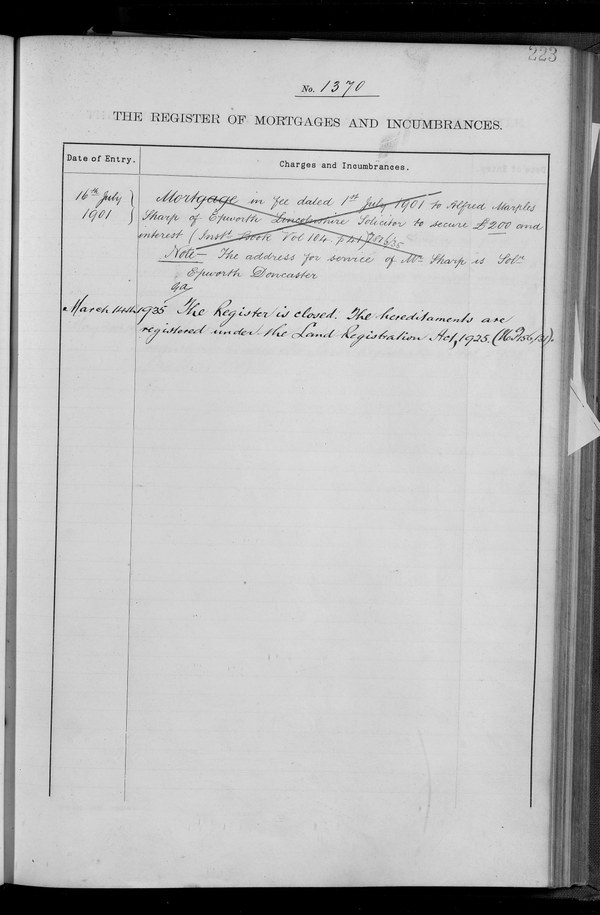 223
No. 1370
THE REGISTER OF MORTGAGES AND INCUMBRANCES.
Date of Entry.
Charges and Incumbrances.
16th July 1901
Mortgage in fee dated 1st July 1901 to Alfred Marples
Sharp of Epworth Lincolnshire Solicitor to secure £200 and
interest (Inst. Book Vol 104 p
Note— The address for service of Mr Sharp is Solr
Epworth Doncaster
March 14th 1935 The Register is closed. The hereditaments are
registered under the Land Registration Act, 1925.